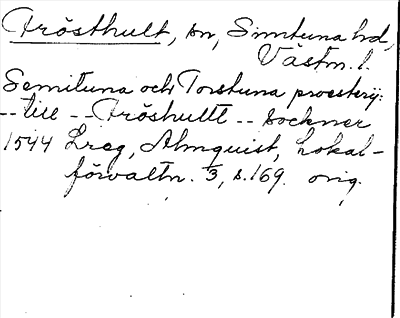 Frösthult, sn, Simtuna hd,
Västm. l.
Semituna och Torstuna prosterij:
-- till -- Fröshullt -- sockner
1544 Lreg, Almquist, Lokal-
förvaltn. 3, s. 169. orig.